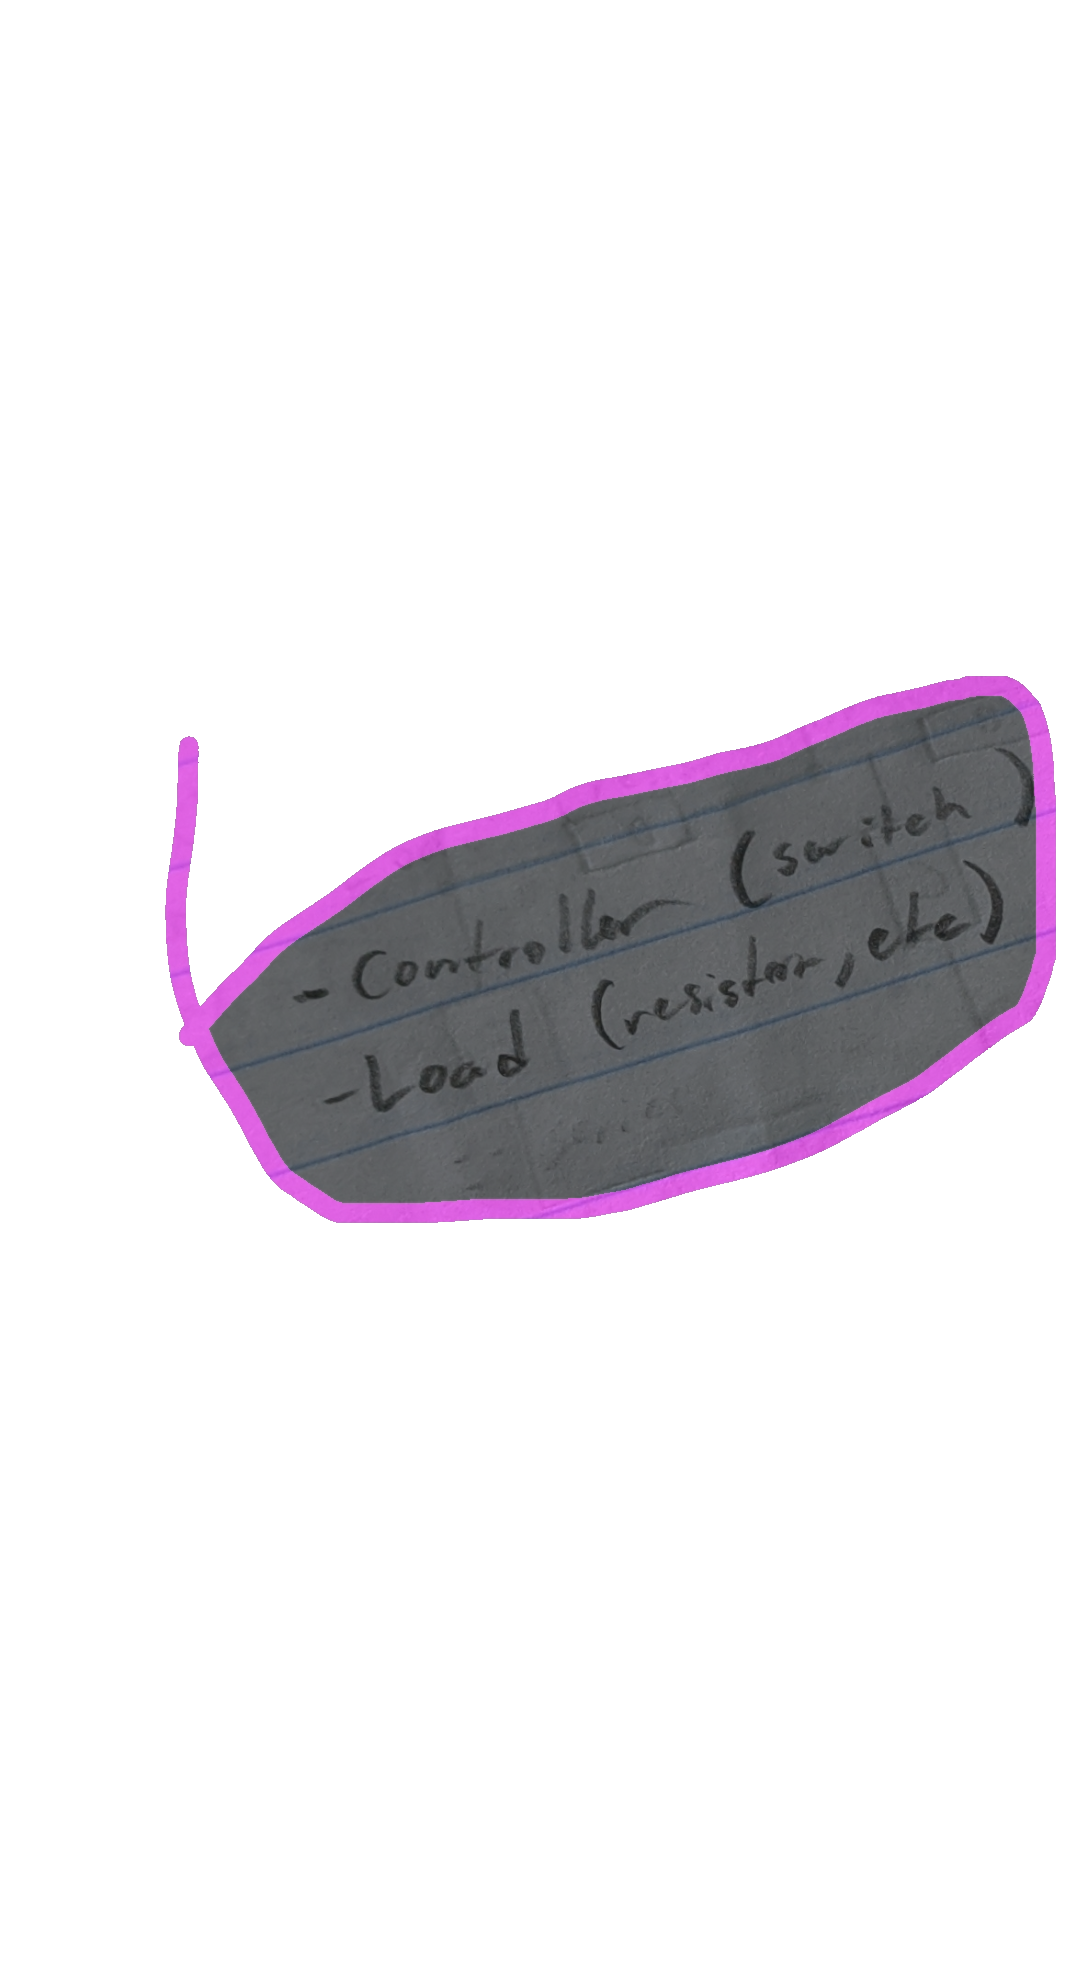 - Controller (switch)
- Load (resistor, etc)